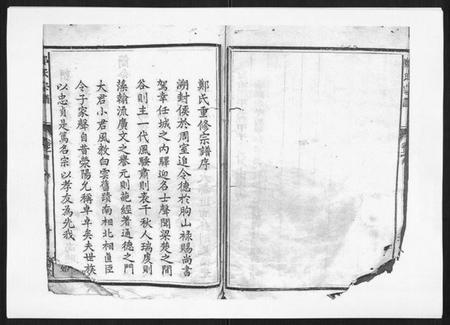 鄭氏重修宗譜序
溯封侯於周室追令德於朐山祿賜尚書
駕幸任城之內驛迎名士聲聞梁楚之間
谷則主一代風騷肅則表千秋人瑞度則
藻翰流廣文之譽元則範經著通德之門
大君小君風教白雲舊蹟南相北相直臣
令子家聲自昔滎陽允稱卓卓矣夫世族
以忠貞是篤名宗以孝友為先我